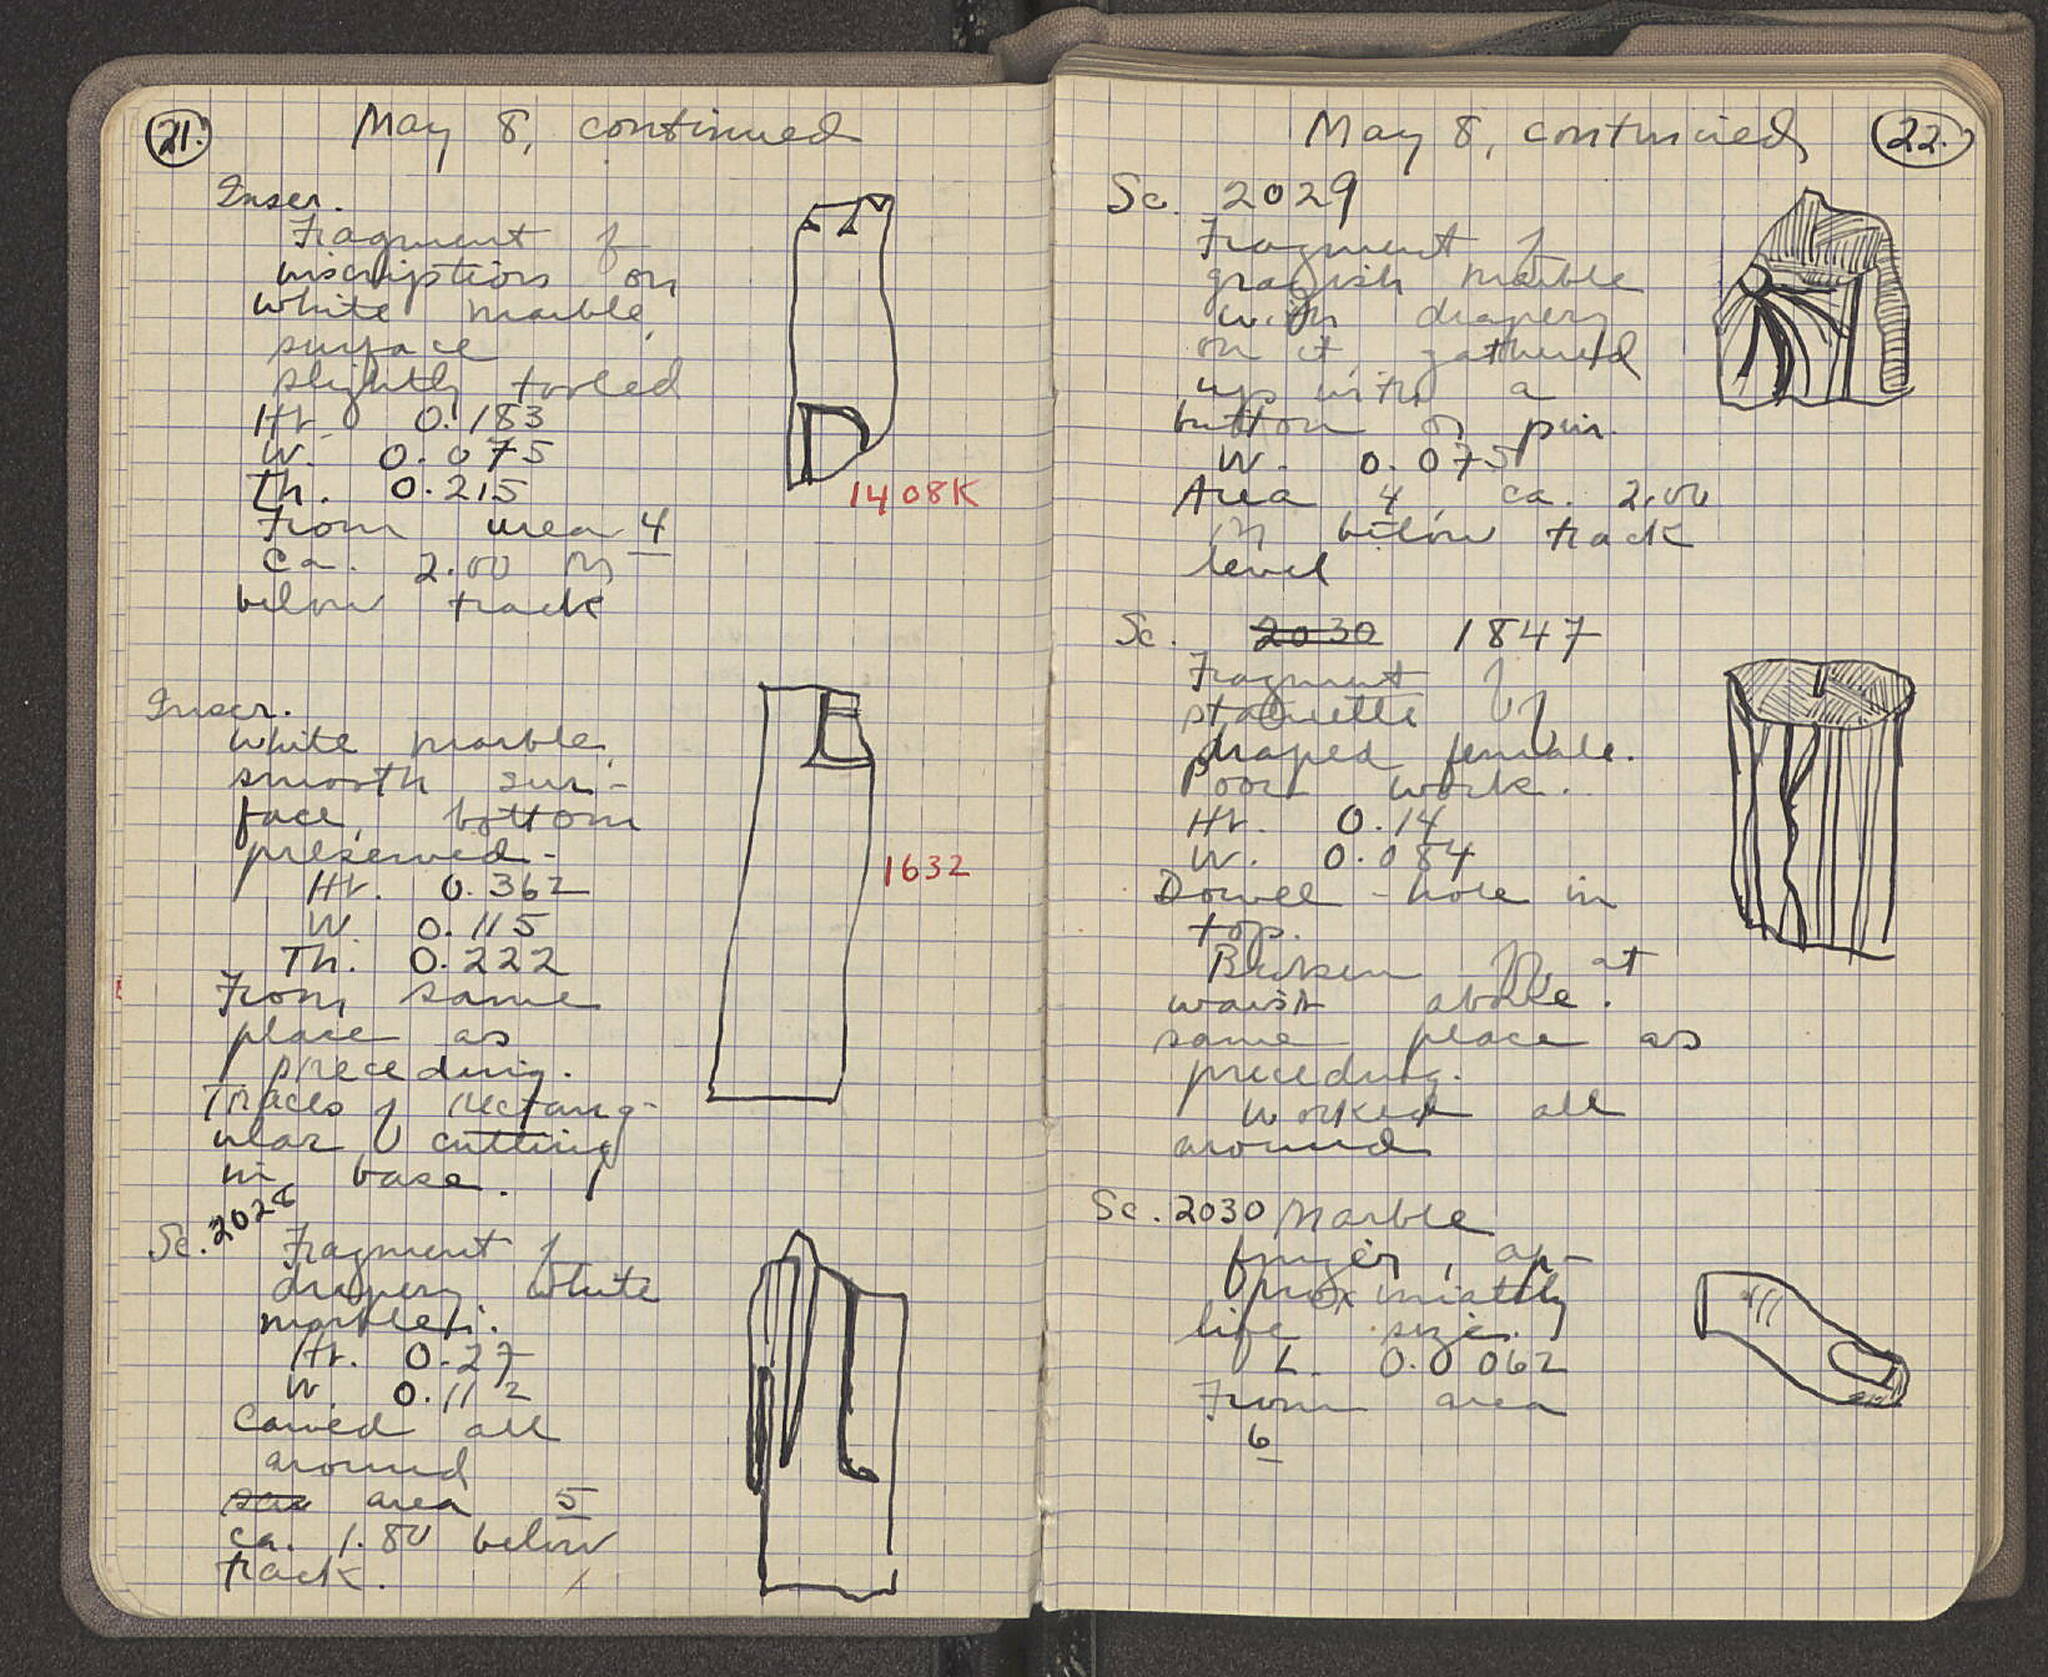 21.
May 8, continued
Inscr.
Fragment of
inscription on
white marble,
surface
slightly tooled
Ht. 0.183
W. 0.075
Th. 0.215
From area 4
ca. 2.00 m
below track
1408K
Inscr.
white marble,
smooth sur-
face, bottom
preserved-
Ht. 0.362
W. 0.115
Th. 0.222
From same
place as
preceding.
Traces of rectang-
ular cutting
in base.
1632
Sc. 2028
Fragment of
drapery white
marble.
Ht. 0.27
W 0.112
Carved all
around
area 5
ca. 1.80 below
track.
22.
May 8, continued
Sc. 2029
Fragment of
grayish marble
with drapery
on it gathered
up with a
button or pin.
W. 0.075
Area 4, ca. 2.00
m below track
level
Sc. 2030 1847
Fragment of
statuette of
draped female.
Poor work.
Ht. 0.14
W. 0.084
Dowel-hole in
top.
Broken off at
waist above.
same place as
preceding.
Worked all
around
Sc. 2030 Marble
finger, ap-
proximately
life size.
L. 0.0062
From area
6